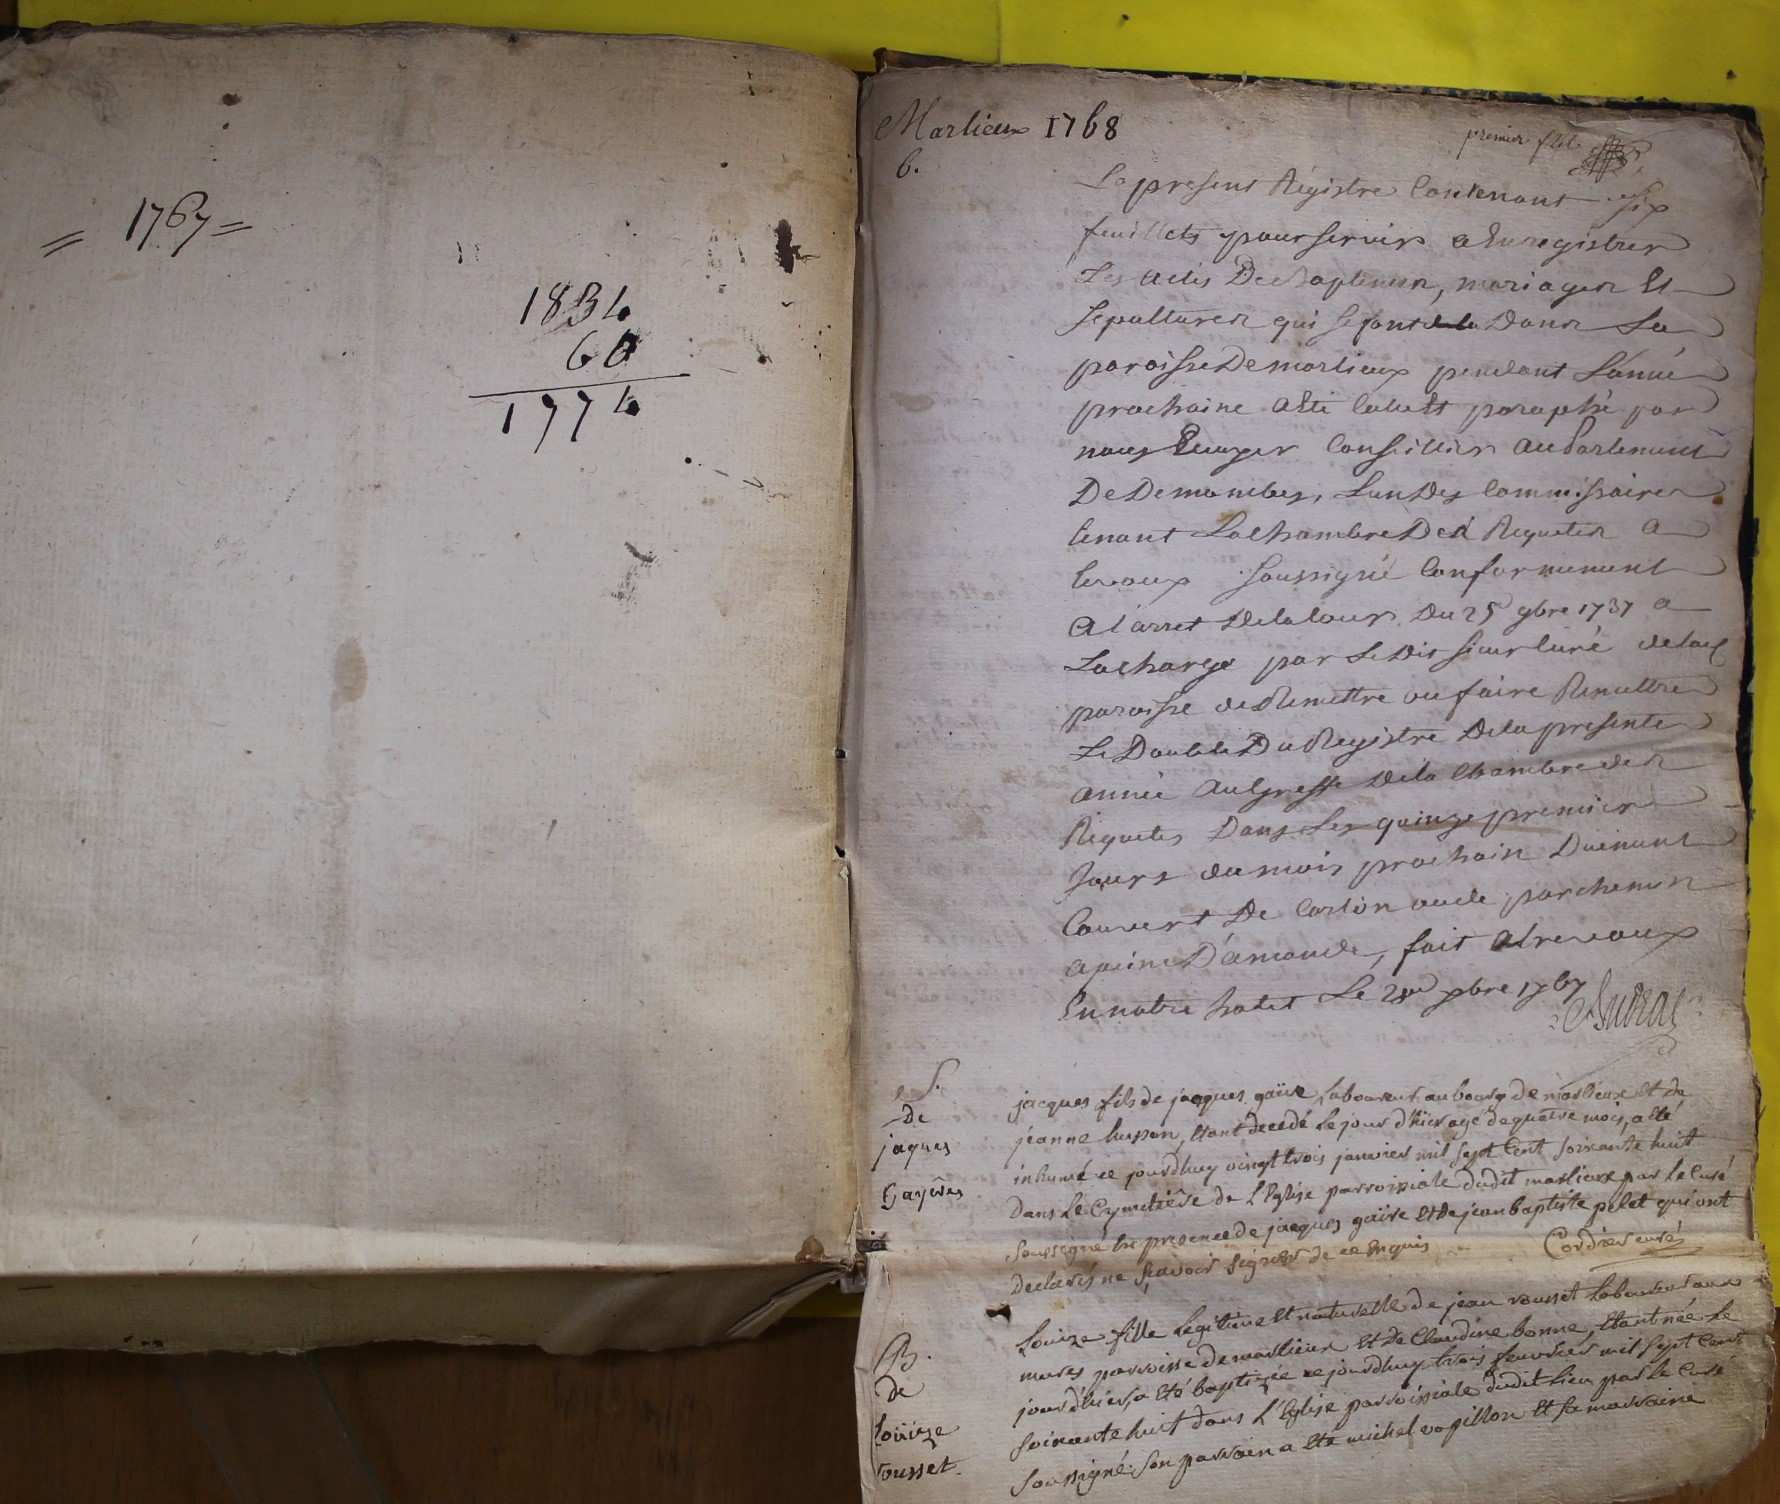 = 1767 =
1834
60
1774
Marlieux 1768
6.
premier f.let
Le present Régistre Contenant Six
feuillets pour servir a Enregistrer
Les actes De Baptemes, mariages Et
sepultures qui se font Dans La
paroisse De marlieux pendant L'année
prochaine a Eté Cotté Et paraphé par
nous Conseiller au Parlement
De Dombes, L'un Des Commissaires
tenant La Chambre Des Requetes a
trevoux soussigné Conformement
a l'arret De la Cour Du 25 9bre 1737 a
La charge par Le Dit sieur Curé de la de
paroisse de Remettre ou faire Remettre
Le Double Du Registre De la presente
année au Greffe De la Chambre des
Requetes Dans Les quinze premiers
Jours du mois prochain Duement
Couvert De Carton ou de parchemin
a peine D'amande, fait a trevoux
En notre hotel Le 9bre 1767
S.
De
jaques
Gayëres
jacques fils de jacques gaïre, Laboureur au bourg de marlieux Et de
jeanne husson, Etant decedé Le jour d'hier agé de quatre mois, a Eté
inhumé ce jourdhuy vingt trois janvier mil sept Cent soixante huit
dans Le Cymetière de L'Eglise parroissiale dudit marlieux par Le Curé
soussigné En presence de jacques gaïre Et de jean baptiste pelet qui ont
declarés ne sçavoir signer de ce Enquis Cordier curé
B.
de
Loüize
rousset.
Louize fille Legitime Et naturelle de jean rousset Laboureur aux
mures parroisse de marlieux Et De Claudine bonne, Etant née Le
jour d'hier, a Eté baptizée ce jourdhuy trois fevrier mil sept Cent
soixante huit dans L'Eglise parroissiale dudit Lieu par Le Curé
soussigné. son parrain a Eté michel papillon Et sa marraine